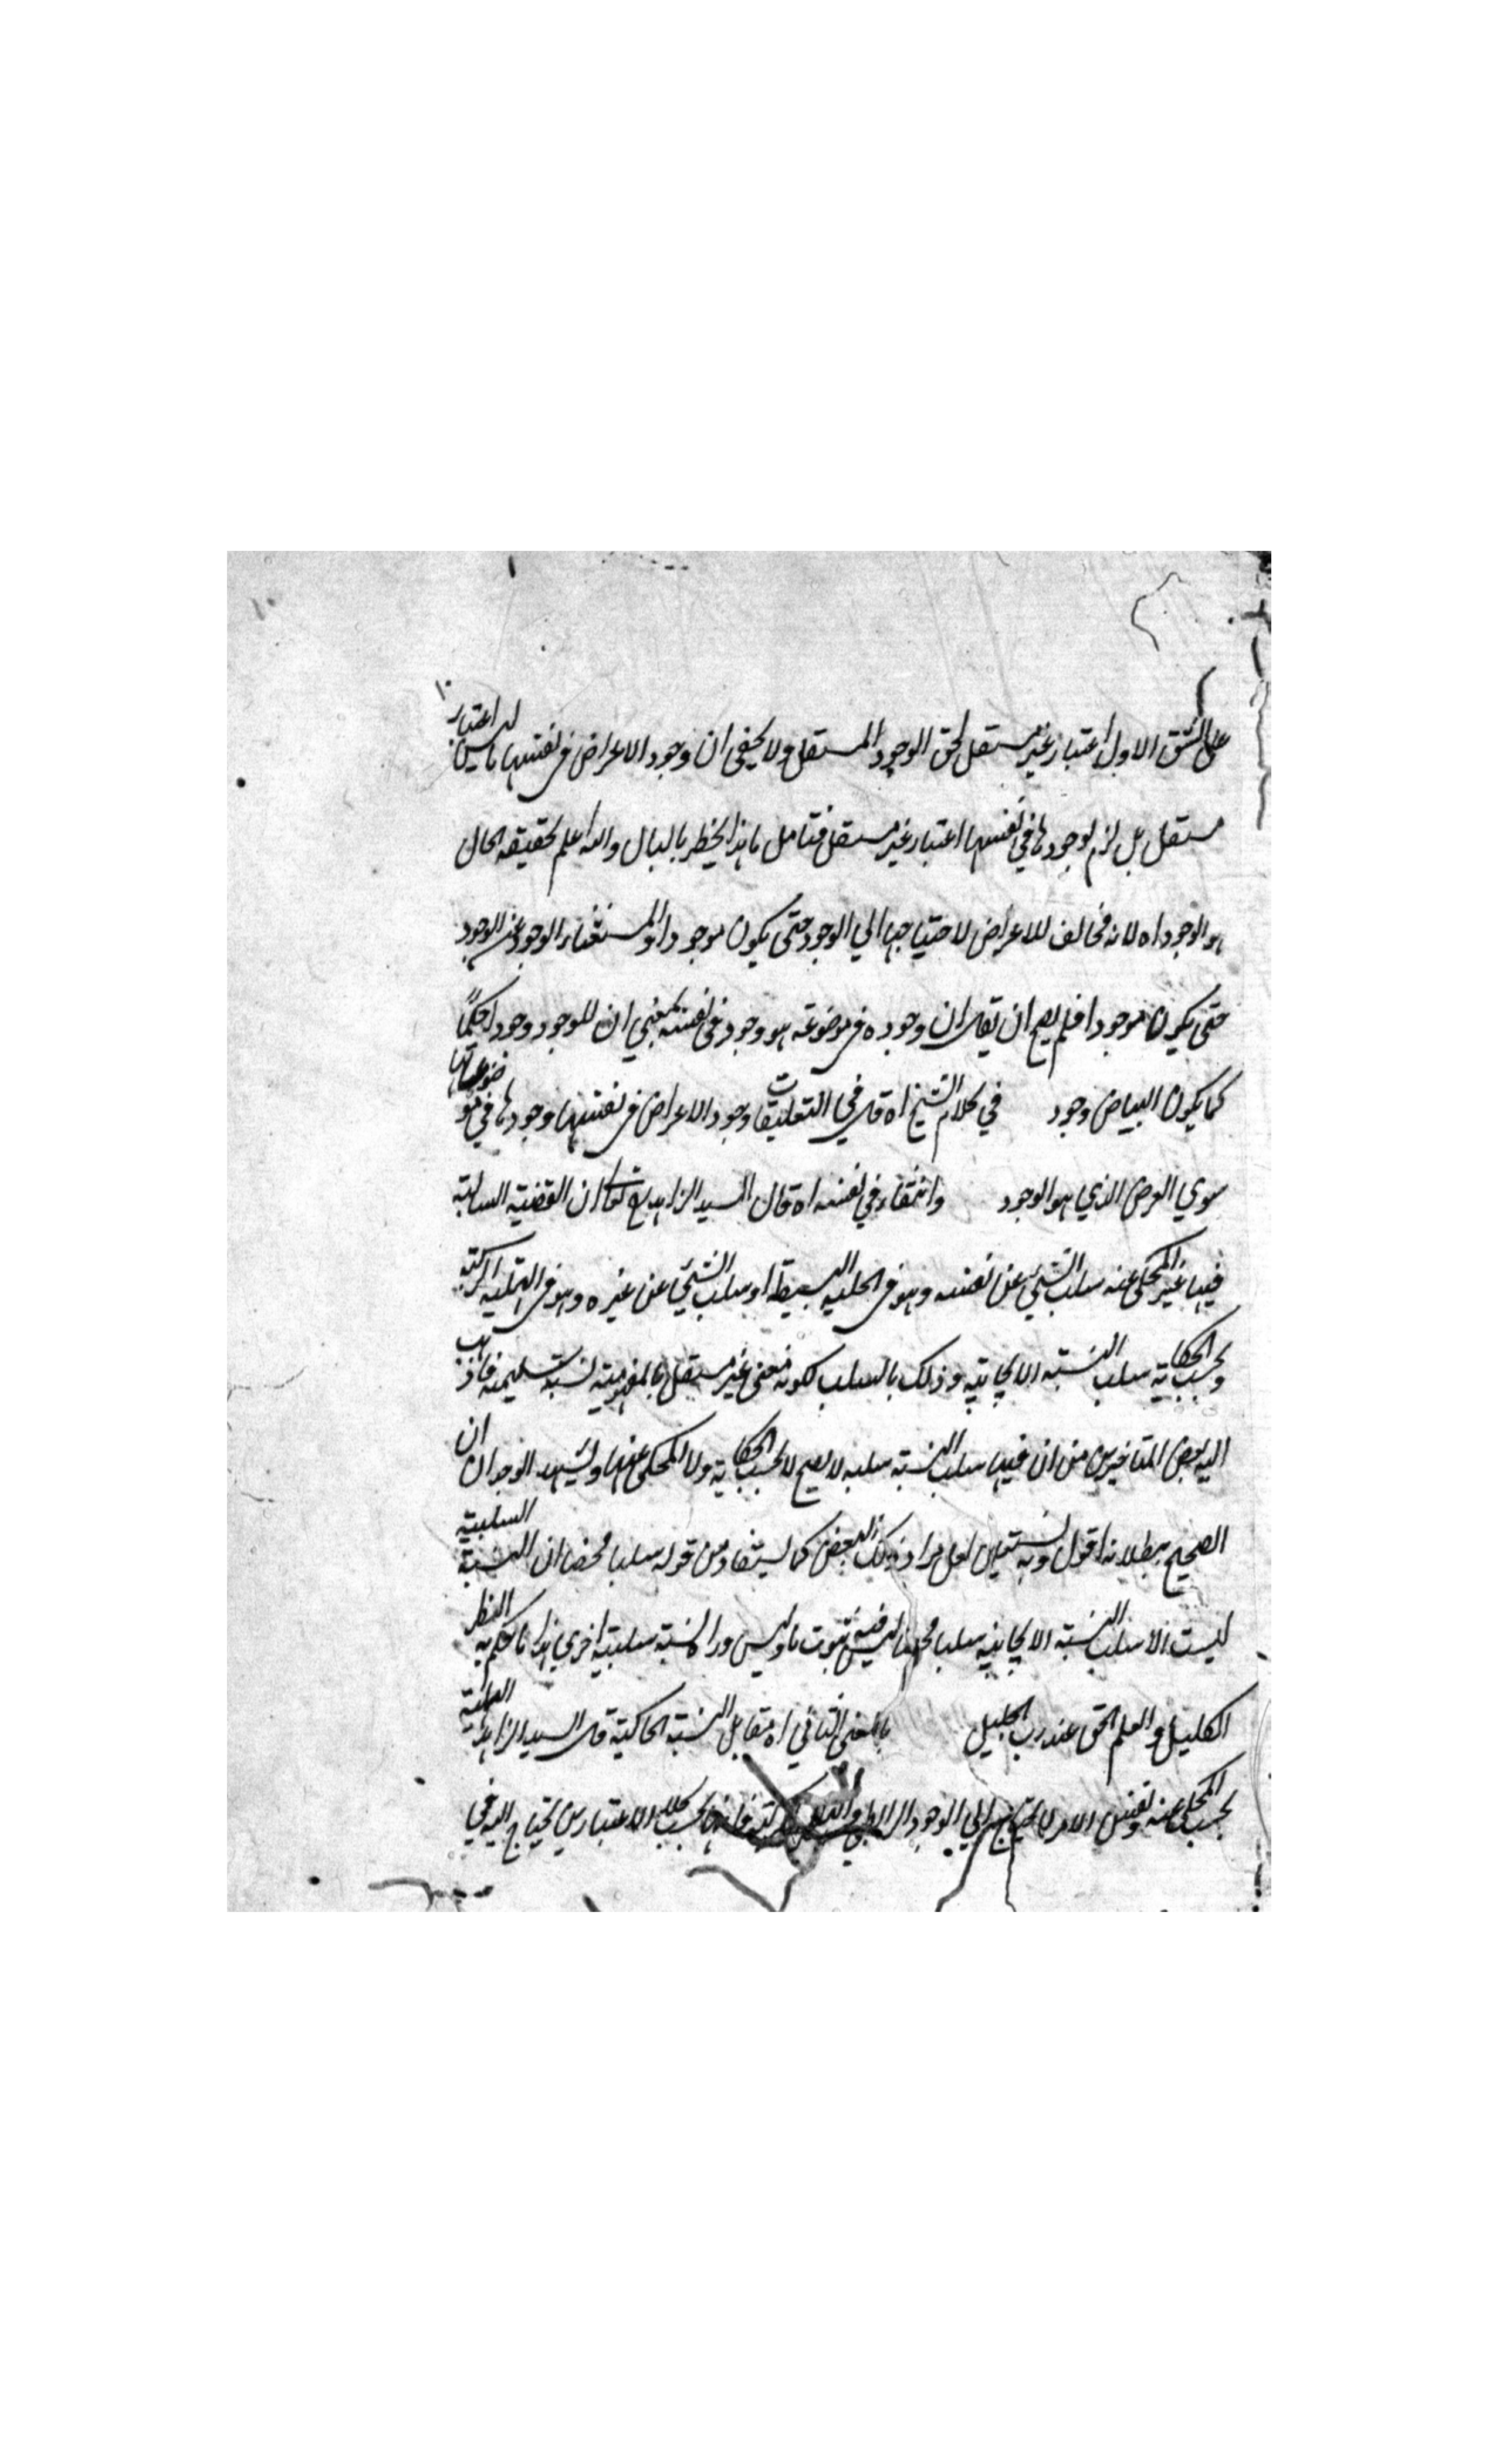 على الشق الاول اعتبار غير مستقل لحق الوجود المستقل ولا يخفى ان وجود الاعراض في نفسها ليس له اعتبار
مستقل بل لزم لوجودها في نفسها اعتبار غير مستقل فتامل ما هذا يخطر بالبال والله اعلم بحقيقة الحال
هو الوجود اه لانه مخالف للاعراض لاحتياجها الي الوجود حتى يكون موجودا واستغناء الوجود عن الوجود
حتى يكون موجودا فلم يصح ان يقال ان وجوده في موضوعه هو وجوده في نفسه بمعنى ان للوجود وجودا كما
كما يكون البياض وجود في كلام الشيخ اه قال في التعليقات وجود الاعراض في نفسها وجودها في موضوعاتها
سوي العرض الذي هو الوجود وانتفاءه في نفسه اه قال السيد الزاهد ان القضية السالبة
فيها غير المحكى عنه سلب الشئ عن نفسه وهو في الهلية البسيطة او سلب الشئ عن غيره وهو في الهلية المركبة
وبحسب الحكاية سلب النسبة الايجابية وذلك بالسلب لكونه معنى غير مستقل بالمفهومية نسبة سلبية فما ذهب
اليه بعض المتاخرين من ان فيها سلب النسبة سلبه لا يصح لا بحسب الحكاية ولا المحكى عنها ويشهد الوجدان ان
الصحيح ببطلانه اقول وبه نستعين لعل مراد ذلك البعض كما يستفاد من قوله سلبا محضا ان النسبة السلبية
ليست الا سلب النسبة الايجابية سلبا محضا ليس فيه ثبوت ما وليس وراءه نسبة سلبية اخري هذا ما حكم به النظر
الكليل والعلم الحق عند رب الجليل بالمعنى الثاني اه مقابل النسبة الحاكية قال السيد الزاهد الهلية
بحسب المحكى عنه ونفس الامر لا يحتاج الي الوجود الرابطي بحسب كلا الاعتبارين يحتاج اليه في